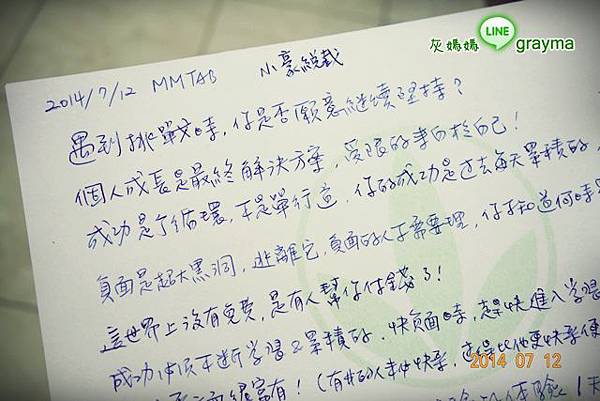 灰媽媽 LINE grayma
2014/7/12 MMTAB 小豪總裁
遇到挑戰時,你是否願意繼續堅持?
個人成長是最終解決方案,受限的事由於自己!
成功是個循環,不是單行道,你的成功是過去每天累積的,
負面是超大黑洞,逃離它,負面的人不需要理,你不知道何時
這世界上沒有免費,是有人幫你付錢了!
成功 不斷學習&累積的.快負面時,趕快進入學習
很富有!(有些的人 快樂, 比他更快樂便
2014 07 12
體驗!天